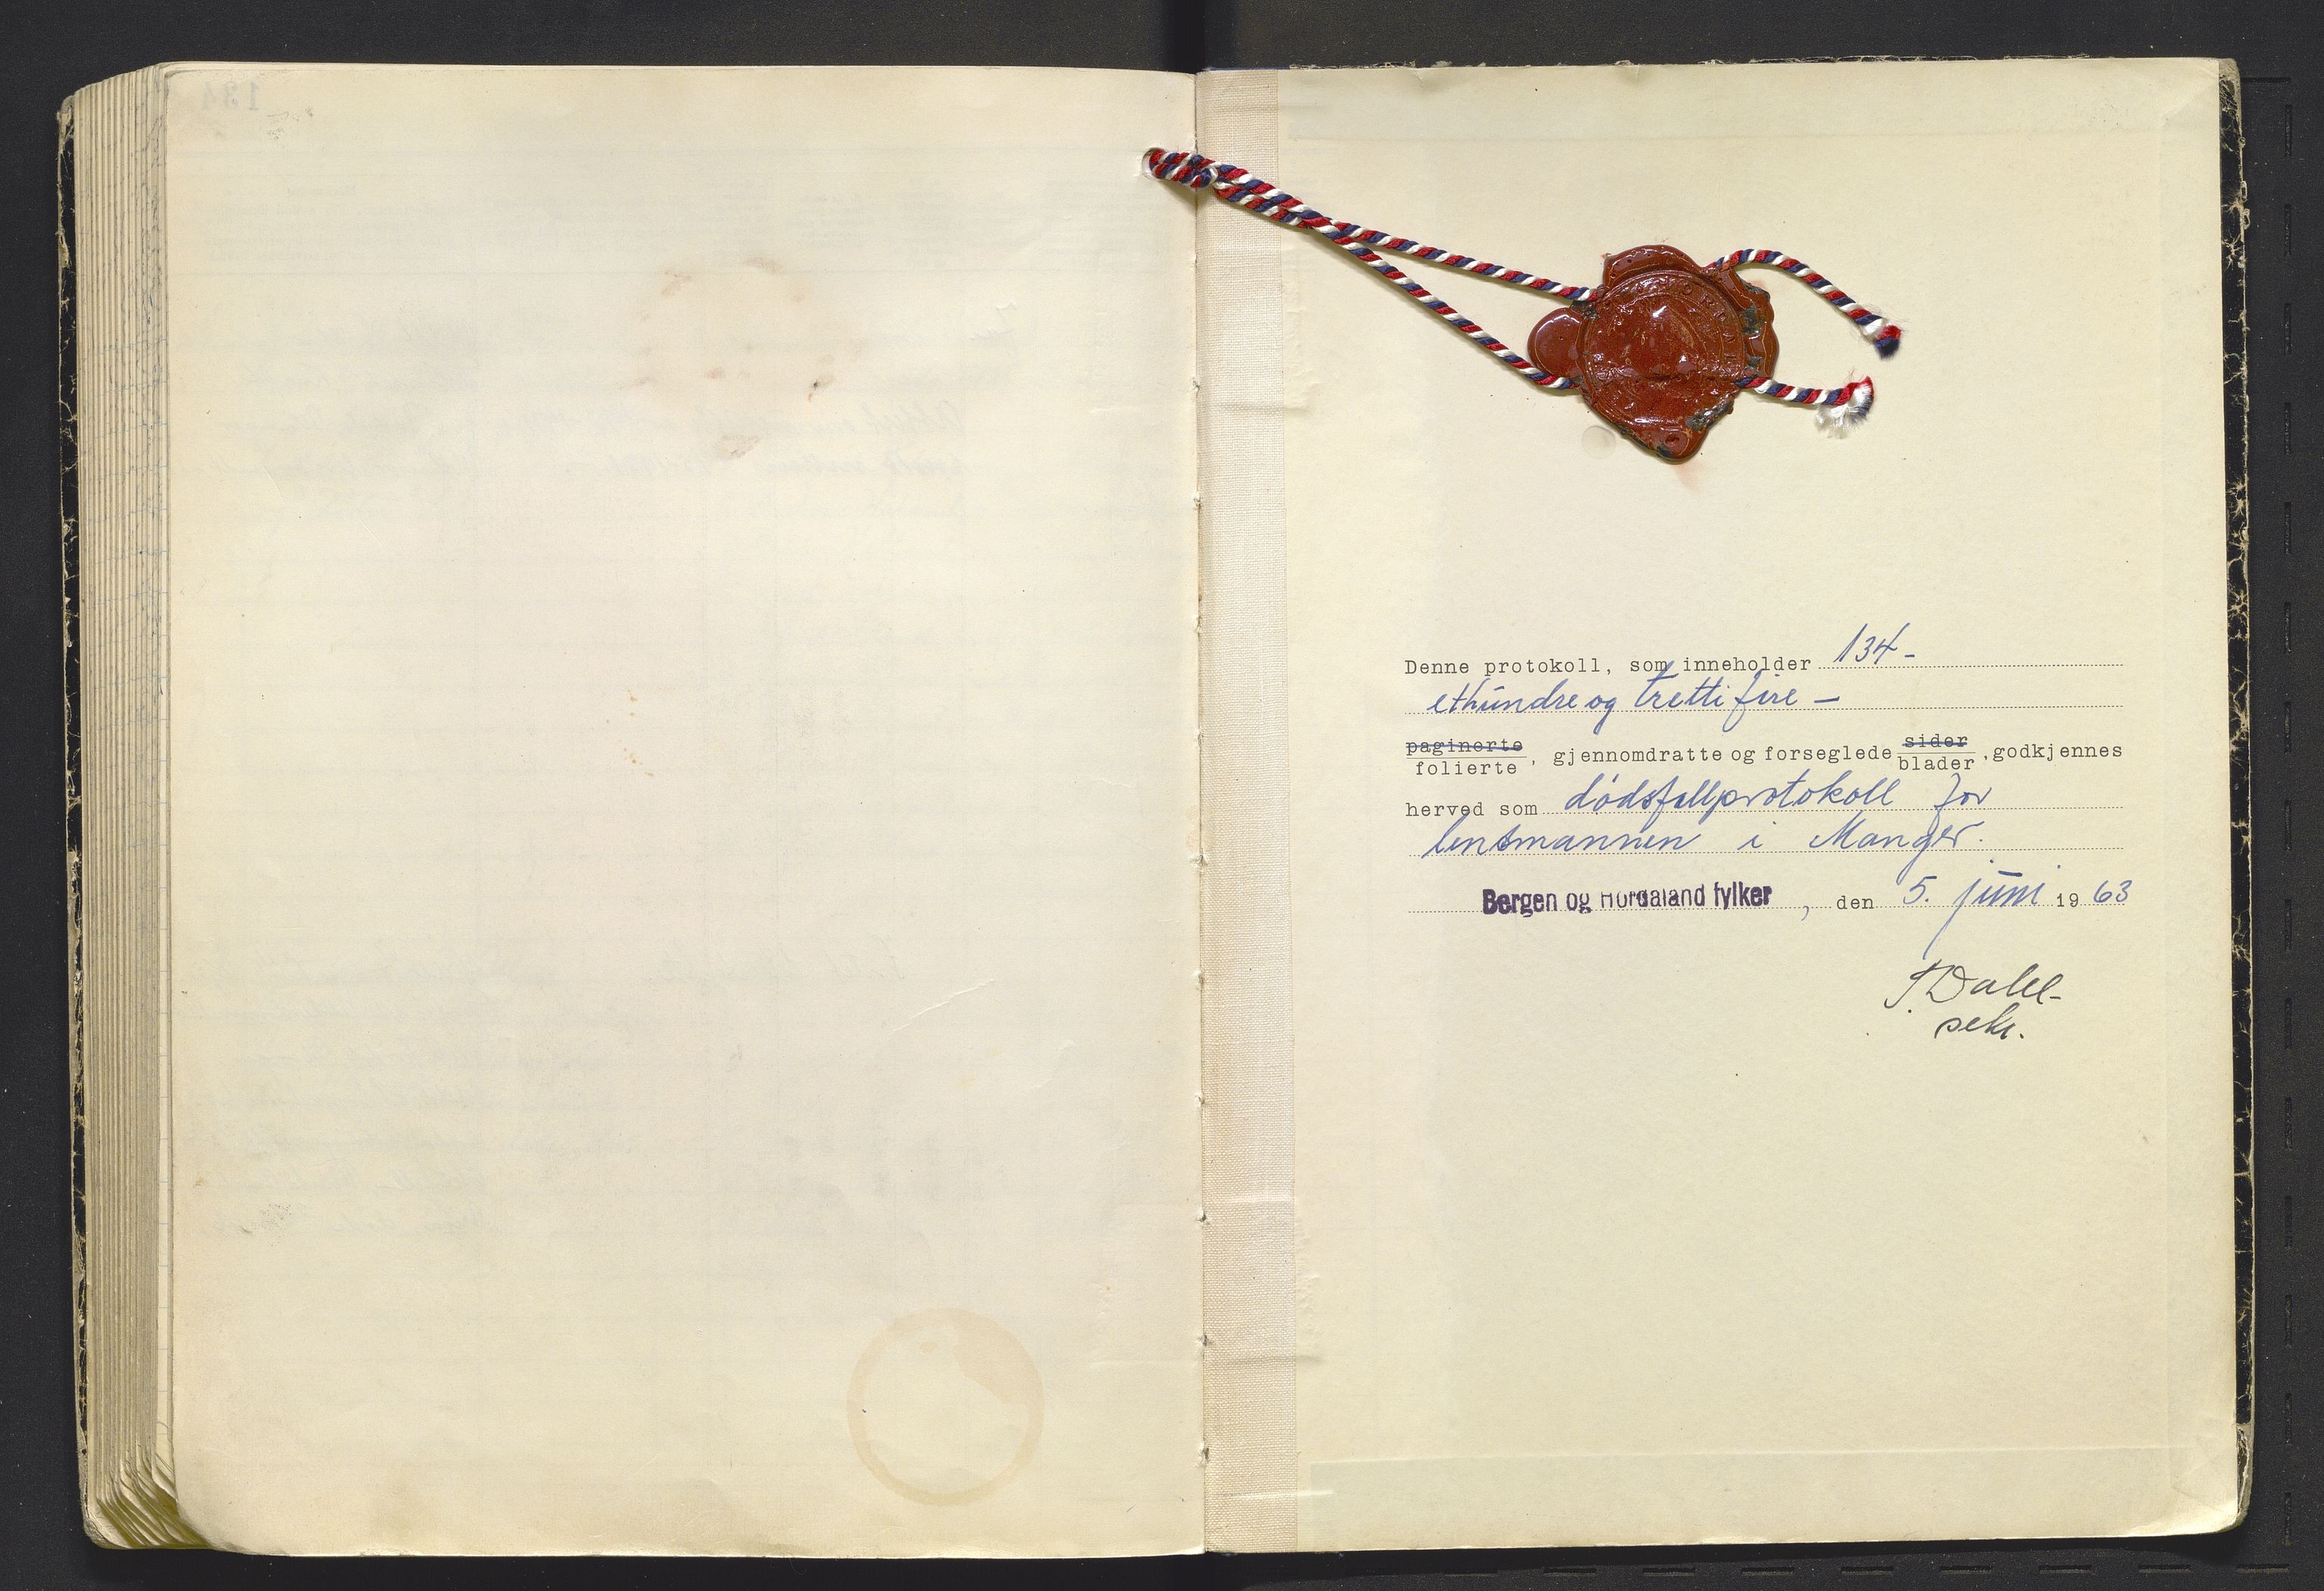 Denne protokoll, som inneholder 134 -
ethundre og trettifire -
paginerte
folierte, gjennomdratte og forseglede sider
blader, godkjennes
herved som dødsfallprotokoll for
lensmannen i Manger.
Bergen og Hordaland fylker, den 5. juni 1963
Dahl-
sekr.
134